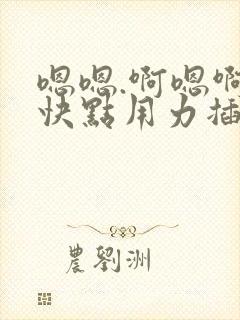 嗯嗯.啊嗯啊
快點用力插
農劉洲